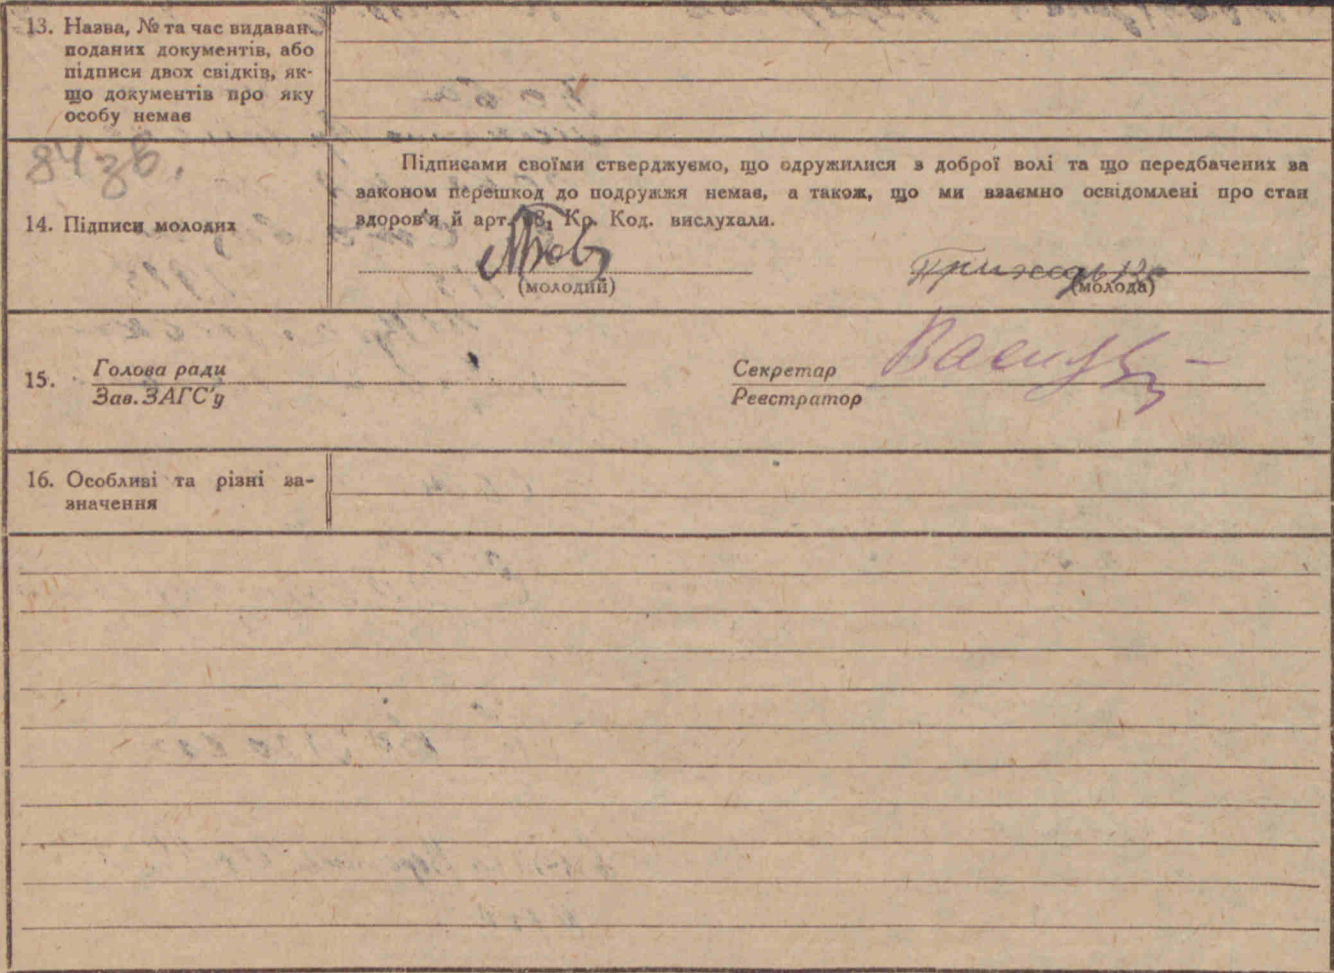 13. Назва, № та час видаван.
поданих документів, або
підписи двох свідків, як-
що документів про яку
особу немає
84 зв.
Підписами своїми стверджуємо, що одружилися з доброї волі та що передбачених за
законом перешкод до подружжя немає, а також, що ми взаємно освідомлені про стан
здоров'я й арт. 68, Кр. Код. вислухали.
14. Підписи молодих
(молодий) (молода)
15. Голова ради Секретар
Зав. ЗАГС'у Реєстратор
16. Особливі та різні за-
значення